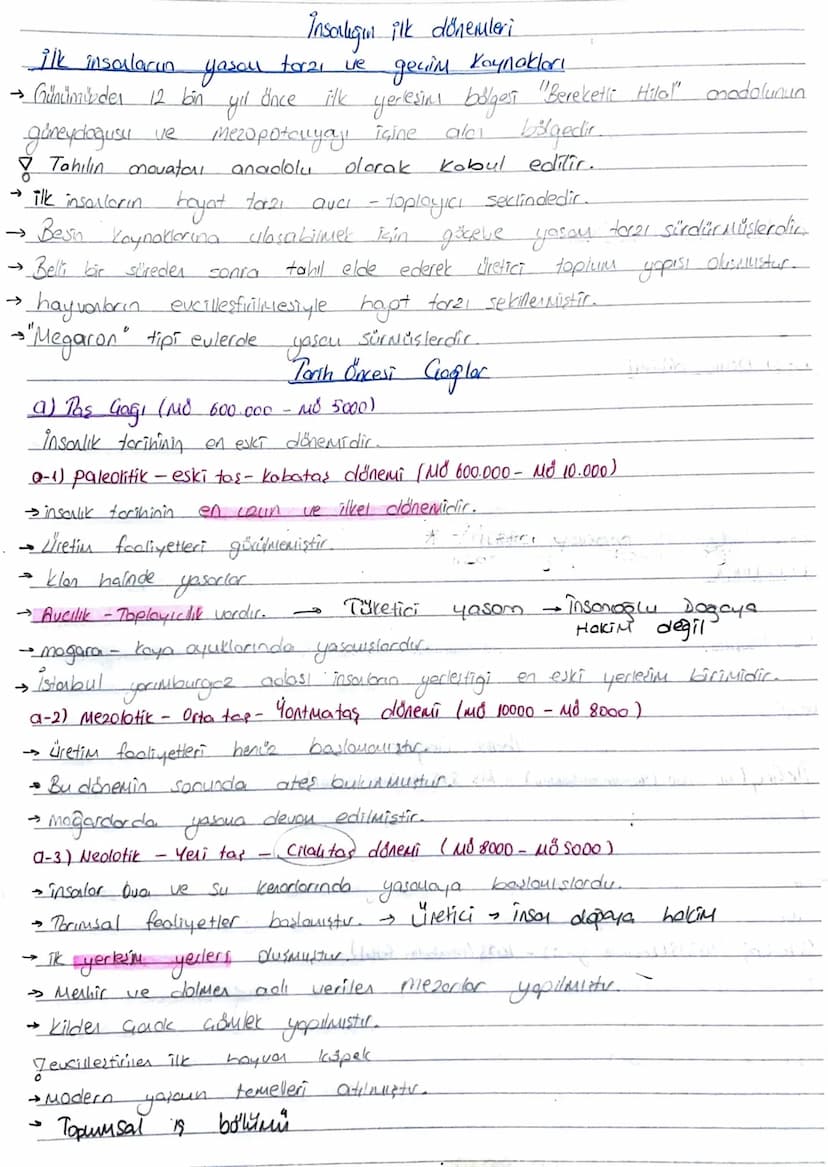 İnsanlığın ilk dönemleri
İlk insanların yaşam tarzı ve geçim kaynakları
→ Günümüzden 12 bin yıl önce ilk yerleşim bölgesi "Bereketli Hilal" anadolunun
güneydoğusu ve Mezopotamyayı içine alan bölgedir.
Tahılın anavatanı anadolu olarak kabul edilir.
→ ilk insanların hayat tarzı avcı - toplayıcı şeklindedir.
→ Besin kaynaklarına ulaşabilmek için göçebe yaşam tarzı sürdürmüşlerdir.
→ Belli bir süreden sonra tahıl elde ederek üretici toplum yapısı oluşmuştur.
→ hayvanların evcilleştirilmesiyle hayat tarzı şekillenmiştir.
→ "Megaron" tipi evlerde yaşam sürmüşlerdir.
Tarih Öncesi Çağlar
a) Taş Çağı (MÖ 600.000 - MÖ 5000)
İnsanlık tarihinin en eski dönemidir.
a-1) Paleolitik - eski taş - kabataş dönemi (MÖ 600.000 - MÖ 10.000)
→ insanlık tarihinin en uzun ve ilkel dönemidir.
→ Üretim faaliyetleri görülmemiştir.
→ klan halinde yaşarlar
→ Avcılık - Toplayıcılık vardır. → Tüketici yaşam → İnsanoğlu Doğaya
Hakim değil
→ mağara - kaya oyuklarında yaşamışlardır.
→ İstanbul yarımburgaz adası insanların yerleştiği en eski yerleşim birimidir.
a-2) Mezolotik - Orta taş - Yontmataş dönemi (MÖ 10000 - MÖ 8000)
→ üretim faaliyetleri henüz başlamamıştır.
→ Bu dönemin sonunda ateş bulunmuştur.
→ mağaralarda yaşama devam edilmiştir.
a-3) Neolotik - Yeni taş - Cilalı taş dönemi (MÖ 8000 - MÖ 5000)
→ insanlar ova ve su kenarlarında yaşamaya başlamışlardır.
→ Tarımsal faaliyetler başlamıştır. → Üretici → İnsan doğaya hakim
→ ilk yerleşim yerleri oluşmuştur.
→ Menhir ve dolmen adı verilen mezarlar yapılmıştır.
→ kilden çanak çömlek yapılmıştır.
evcilleştirilen ilk hayvan köpek
→ modern yaşamın temelleri atılmıştır.
→ Toplumsal iş bölümü